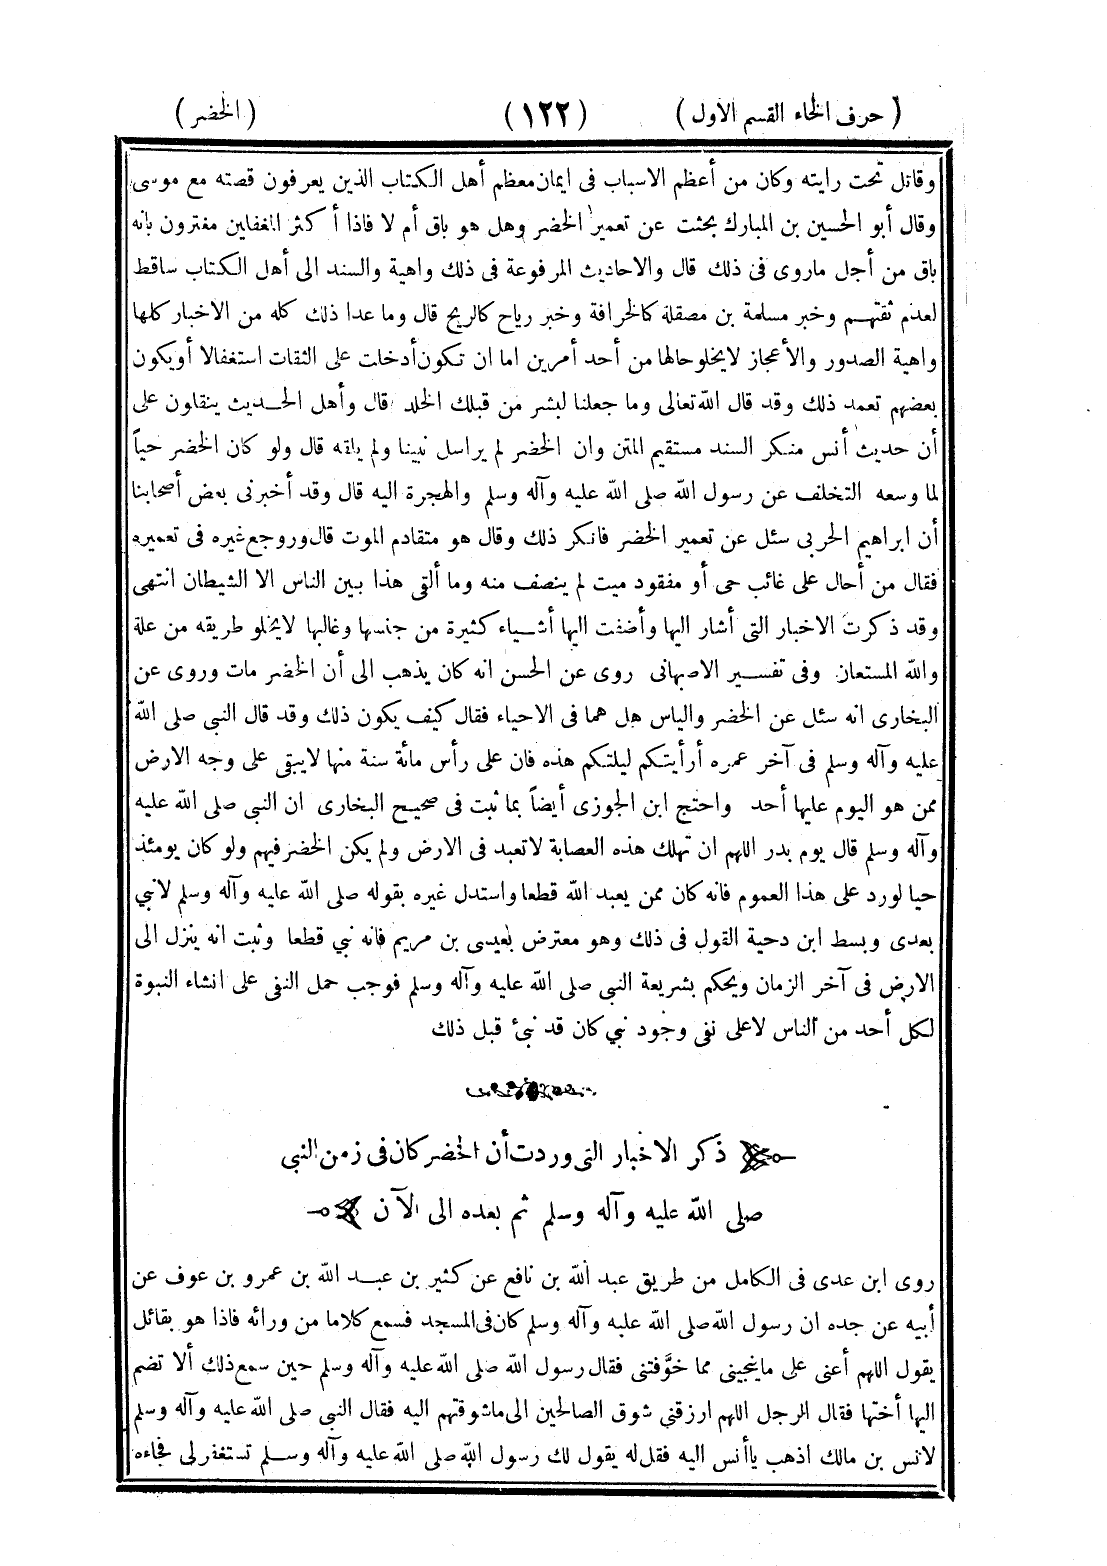 ( حرف الخاء القسم الاول ) (١٢٢) (الخضر)
وقاتل تحت رايته وكان من أعظم الاسباب فى ايمان معظم أهل الكتاب الذين يعرفون قصته مع موسى
وقال أبو الحسين بن المبارك بحثت عن تعمير الخضر وهل هو باق أم لا فاذا أكثر المغفلين مغترون بانه
باق من أجل ماروى فى ذلك قال والاحاديث المرفوعة فى ذلك واهية والسند الى أهل الكتاب ساقط
لعدم ثقتهم وخبر مسلمة بن مصقلة كالخرافة وخبر رياح كالريح قال وما عدا ذلك كله من الاخبار كلها
واهية الصدور والأعجاز لايخلو حالها من أحد أمرين اما ان تكون أدخلت على الثقات استغفالا أويكون
بعضهم تعمد ذلك وقد قال الله تعالى وما جعلنا لبشر من قبلك الخلد قال وأهل الحديث ينقلون على
أن حديث أنس منكر السند مستقيم المتن وان الخضر لم يراسل نبينا ولم يلقه قال ولو كان الخضر حياً
لما وسعه التخلف عن رسول الله صلى الله عليه وآله وسلم والهجرة اليه قال وقد أخبرنى بعض أصحابنا
أن ابراهيم الحربى سئل عن تعمير الخضر فانكر ذلك وقال هو متقادم الموت قال وروجع غيره فى تعميره
فقال من أحال على غائب حى أو مفقود ميت لم ينصف منه وما ألقى هذا بين الناس الا الشيطان انتهى
وقد ذكرت الاخبار التى أشار اليها وأضفت اليها أشياء كثيرة من جنسها وغالبها لايخلو طريقه من علة
والله المستعان وفى تفسير الاصبهانى روى عن الحسن انه كان يذهب الى أن الخضر مات وروى عن
البخارى انه سئل عن الخضر والياس هل هما فى الاحياء فقال كيف يكون ذلك وقد قال النبى صلى الله
عليه وآله وسلم فى آخر عمره أرأيتكم ليلتكم هذه فان على رأس مائة سنة منها لايبقى على وجه الارض
ممن هو اليوم عليها أحد واحتج ابن الجوزى أيضاً بما ثبت فى صحيح البخارى ان النبى صلى الله عليه
وآله وسلم قال يوم بدر اللهم ان تهلك هذه العصابة لاتعبد فى الارض ولم يكن الخضر فيهم ولو كان يومئذ
حيا لورد على هذا العموم فانه كان ممن يعبد الله قطعا واستدل غيره بقوله صلى الله عليه وآله وسلم لانبي
بعدى وبسط ابن دحية القول فى ذلك وهو معترض بعيسى بن مريم فانه نبي قطعا وثبت انه ينزل الى
الارض فى آخر الزمان ويحكم بشريعة النبى صلى الله عليه وآله وسلم فوجب حمل النفى على انشاء النبوة
لكل أحد من الناس لاعلى نفى وجود نبي كان قد نبئ قبل ذلك
ذكر الاخبار التى وردت أن الخضر كان فى زمن النبى
صلى الله عليه وآله وسلم ثم بعده الى الآن
روى ابن عدى فى الكامل من طريق عبد الله بن نافع عن كثير بن عبد الله بن عمرو بن عوف عن
أبيه عن جده ان رسول الله صلى الله عليه وآله وسلم كان فى المسجد فسمع كلاما من ورائه فاذا هو بقائل
يقول اللهم أعنى على ماينجينى مما خوّفتنى فقال رسول الله صلى الله عليه وآله وسلم حين سمع ذلك ألا تضم
اليها أختها فقال الرجل اللهم ارزقنى شوق الصالحين الى ماشوقتهم اليه فقال النبى صلى الله عليه وآله وسلم
لانس بن مالك اذهب ياأنس اليه فقل له يقول لك رسول الله صلى الله عليه وآله وسلم تستغفر لى فجاءه